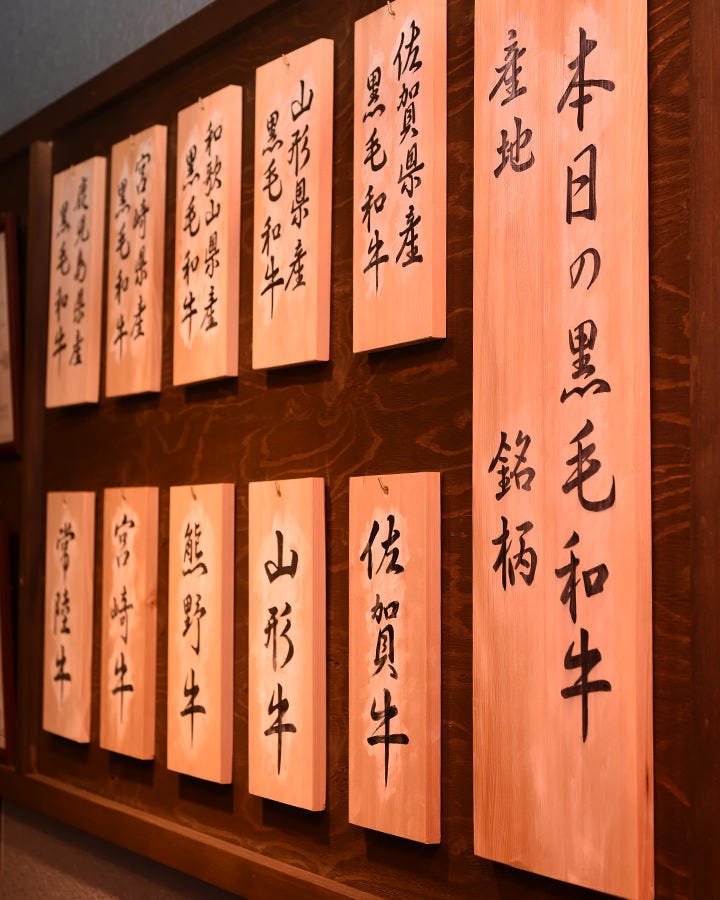 本日の黒毛和牛
産地
銘柄
佐賀県産
黒毛和牛
山形県産
黒毛和牛
和歌山県産
黒毛和牛
宮崎県産
黒毛和牛
鹿児島県産
黒毛和牛
佐賀牛
山形牛
熊野牛
宮崎牛
常陸牛